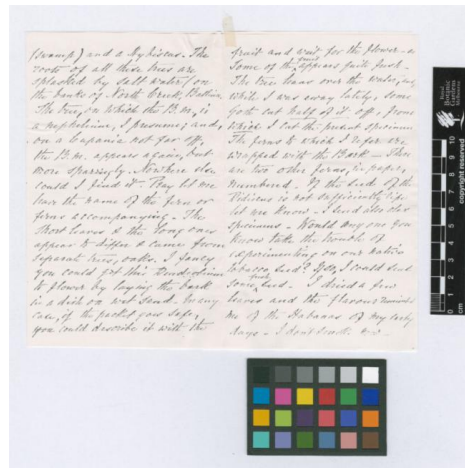 (swamp) and a Hybiscus. The
roots of all these trees are
splashed by salt water (on
the banks of North Creek, Ballina
The tree, on which the B.m. is
a nephelium, I presume; and,
on a Cupania not far off,
the B.m. appears again, but
more sparingly. Nowhere else
could I find it - Pray let me
have the name of the fern or
ferns accompanying - The
short leaves & the long ones
appear to differ & came from
separate trees, oaks. I fancy
you could get this Dendrobium
to flower by laying the bark
in a dish on wet sand. In any
case, if the packet goes safe,
you could describe it with the
fruit and wait for the flower -
Some of the fruit appears quite fresh -
The tree leans over the water, and
while I was away lately, some
Goth cut half of it off, from
which I cut the present specimen
The ferns to which I refer are
wrapped with the Bark - There
are two other ferns, in paper,
numbered. If the seed of the
is not sufficiently ripe
let me know - I send also
specimens - Would any one you
know take the trouble of
experimenting on our native
tobacco seed? If so, I could send
some fresh seed - I dried a few
leaves and the flavour reminded
me of the Habanas of my early
days - I don't smoke now -
Royal
Botanic
Gardens
copyright reserved
0 1 2 3 4 5 6 7 8 9 10
cm